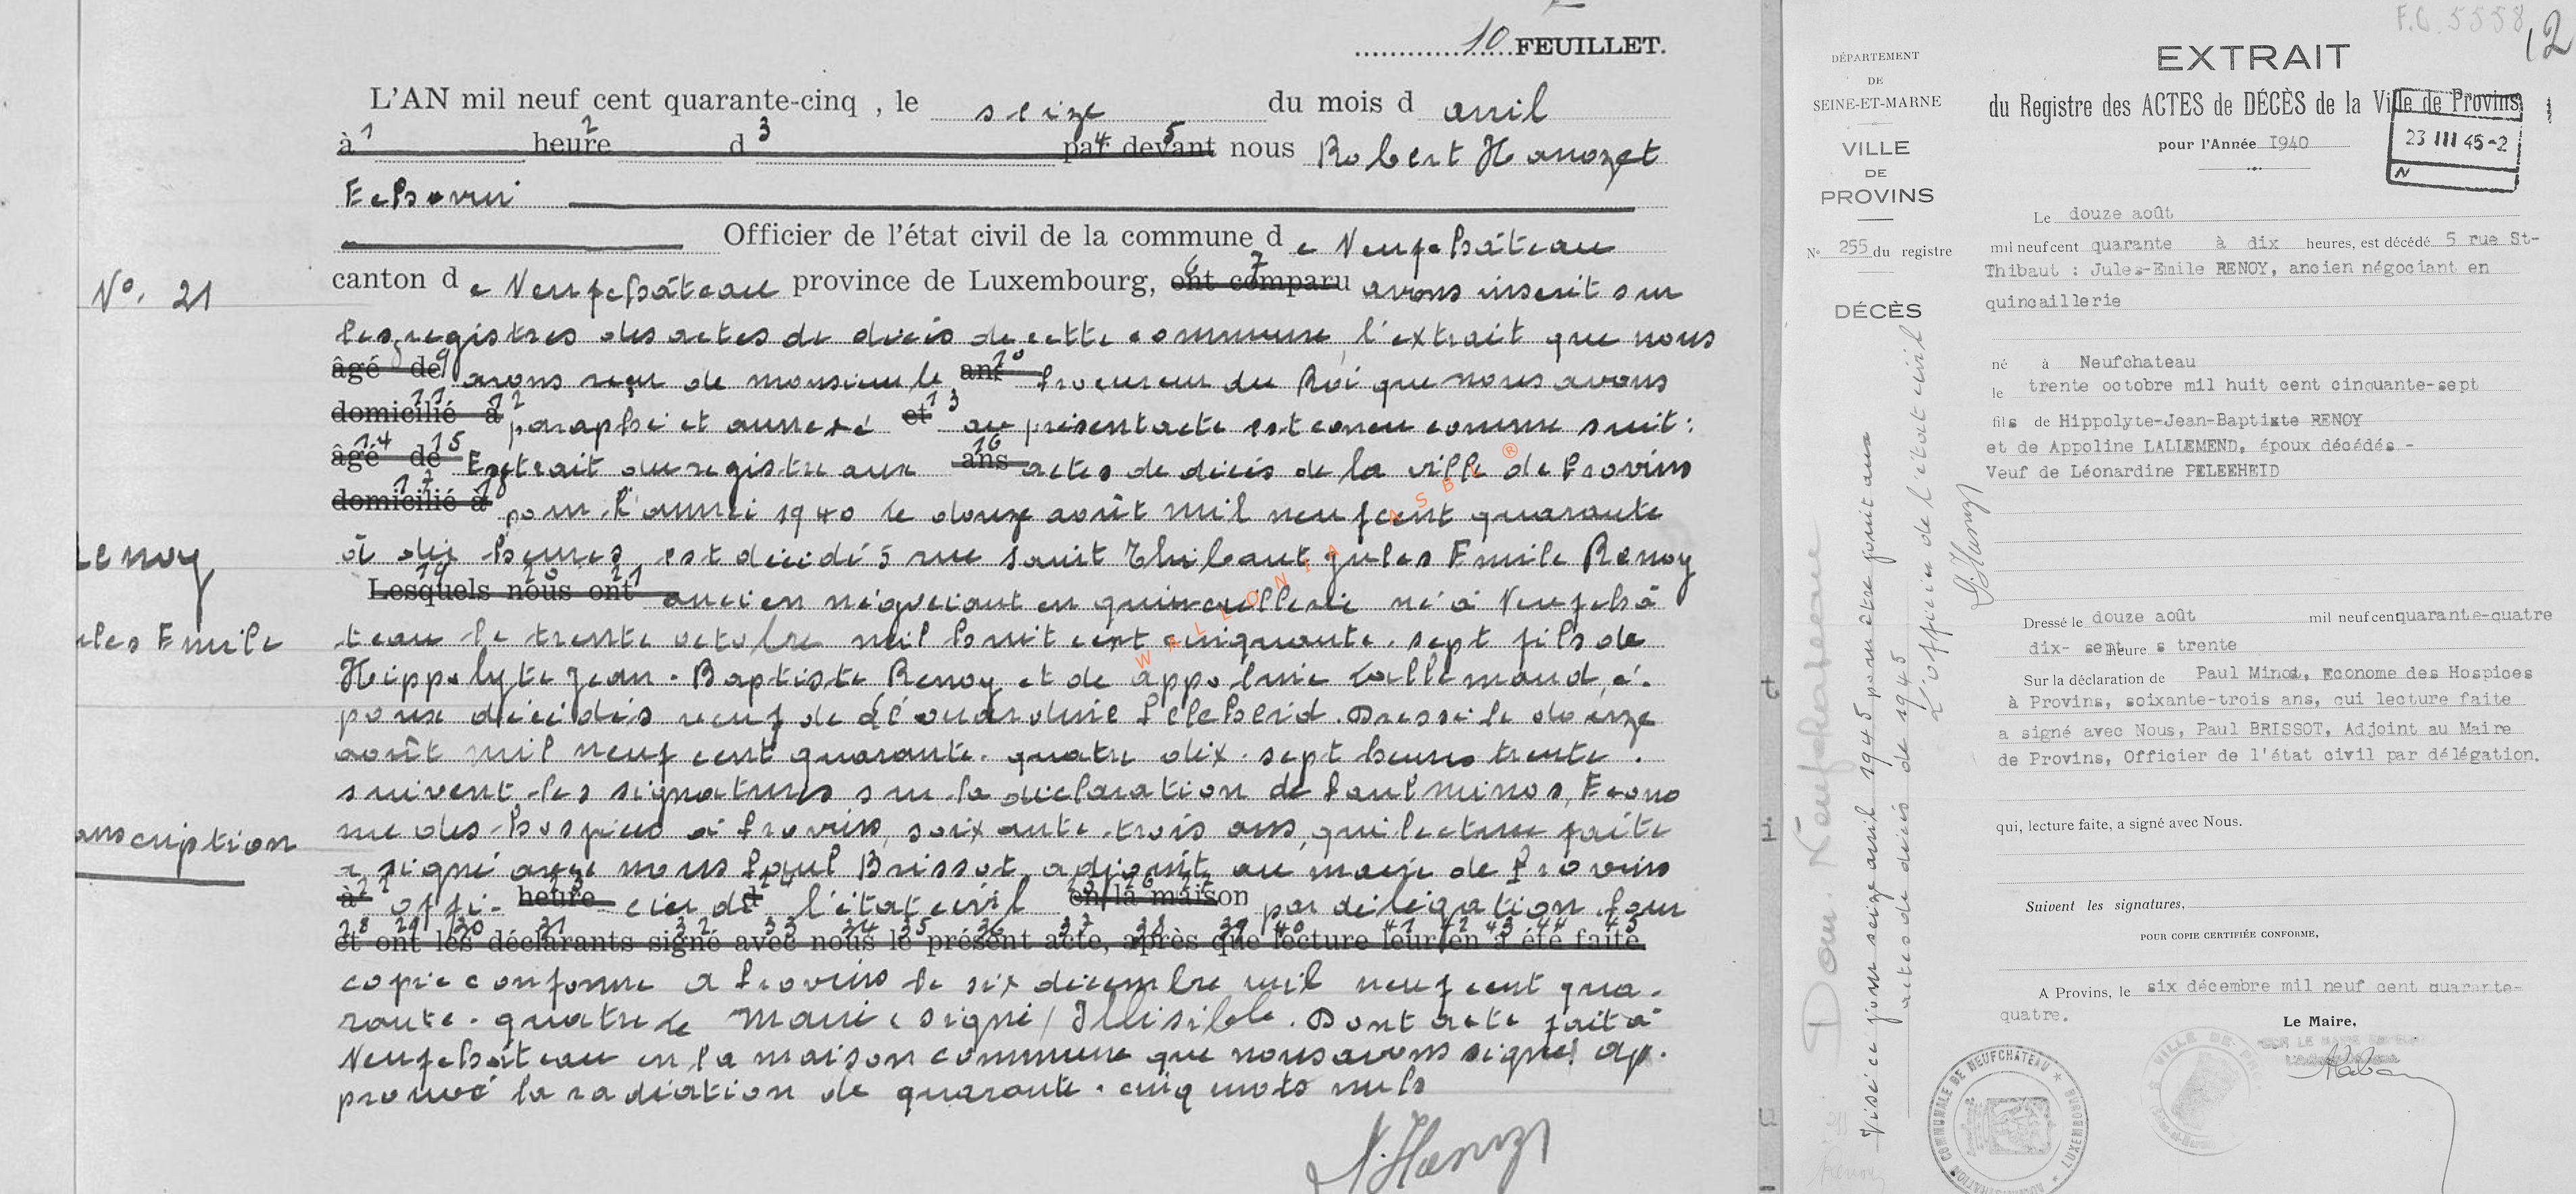 10 FEUILLET.
L'AN mil neuf cent quarante-cinq , le seize du mois d avril
à 1 heure 2 d 3 par 4 devant 5 nous Robert Hanozet
Echevin
Officier de l'état civil de la commune d e Neufchâteau
N°. 21
canton d e Neufchâteau province de Luxembourg, ont 6 comparu 7 avons inscrit sur
les registres des actes de décès de cette commune, l'extrait que nous
âgé 8 de 9 avons reçu de monsieur le ans 10 Procureur du Roi que nous avons
domicilié 11 à 12 paraphé et annexé et 13 au présent acte est conçu comme suit :
âgé 14 de 15 Extrait du registre aux ans 16 actes de décès de la ville de Provins
domicilié 17 à pour l'année 1940 le douze août mil neuf cent quarante
à dix heures est décédé 5 rue saint Thibaut Jules Emile Renoy
Lesquels 19 nous 20 ont 21 ancien négociant en quincaillerie né à Neufchâ
teau le trente octobre mil huit cent cinquante-sept fils de
Hippolyte Jean-Baptiste Renoy et de Appoline Lallemand, é-
poux décédés veuf de Léonardine Peleheid. Dressé le douze
août mil neuf cent quarante-quatre dix-sept heures trente.
suivent les signatures sur la déclaration de Paul Minos, Econo
me des Hospices à Provins, soixante-trois ans, qui lecture faite
a signé avec nous Paul Brissot, adjoint au maire de Provins
à 22 offi- heure 23 cier de d 24 l'état civil en 25 la 26 maison 27 par délégation pour
28 29 30 31 32 33 34 35 36 37 38 39 40 41 42 43 44 45
et ont les déclarants signé avec nous le présent acte, après que lecture leur en a été faite
copie conforme a Provins le six décembre mil neuf cent qua-
rante-quatre le Maire (signé) Illisible. Dont acte fait à
Neufchâteau en la maison commune que nous avons signé! ap-
prouvé la radiation de quarante-cinq mots nuls
Renoy
ules Emile
anscription
WALLONIA ASBL ®
F.C. 5558
12
DÉPARTEMENT
DE
SEINE-ET-MARNE
VILLE
DE
PROVINS
N° 255 du registre
DÉCÈS
EXTRAIT
du Registre des ACTES de DÉCÈS de la Ville de Provins
pour l'Année 1940
23 III 45-2
N
Le douze août
mil neuf cent quarante à dix heures, est décédé 5 rue St-
Thibaut : Jules-Emile RENOY, ancien négociant en
quincaillerie
né à Neufchateau
le trente octobre mil huit cent cinquante-sept
fils de Hippolyte-Jean-Baptixte RENOY
et de Appoline LALLEMEND, époux décédés -
Veuf de Léonardine PELEEHEID
Dressé le douze août mil neuf cent quarante-quatre
dix- sept heure s trente
Sur la déclaration de Paul Minod, Econome des Hospices
à Provins, soixante-trois ans, cui lecture faite
a signé avec Nous, Paul BRISSOT, Adjoint au Maire
de Provins, Officier de l'état civil par délégation.
qui, lecture faite, a signé avec Nous.
Suivent les signatures,
POUR COPIE CERTIFIÉE CONFORME,
A Provins, le six décembre mil neuf cent quarante-
quatre.
Le Maire,
Dom. Neufchateau
Visé ce jour seize avril 1945 pour être joint aux
actes de décès de 1945
L'officier de l'état civil
ADMINISTRATION COMMUNALE DE NEUFCHÂTEAU * LUXEMBOURG *
Renoy